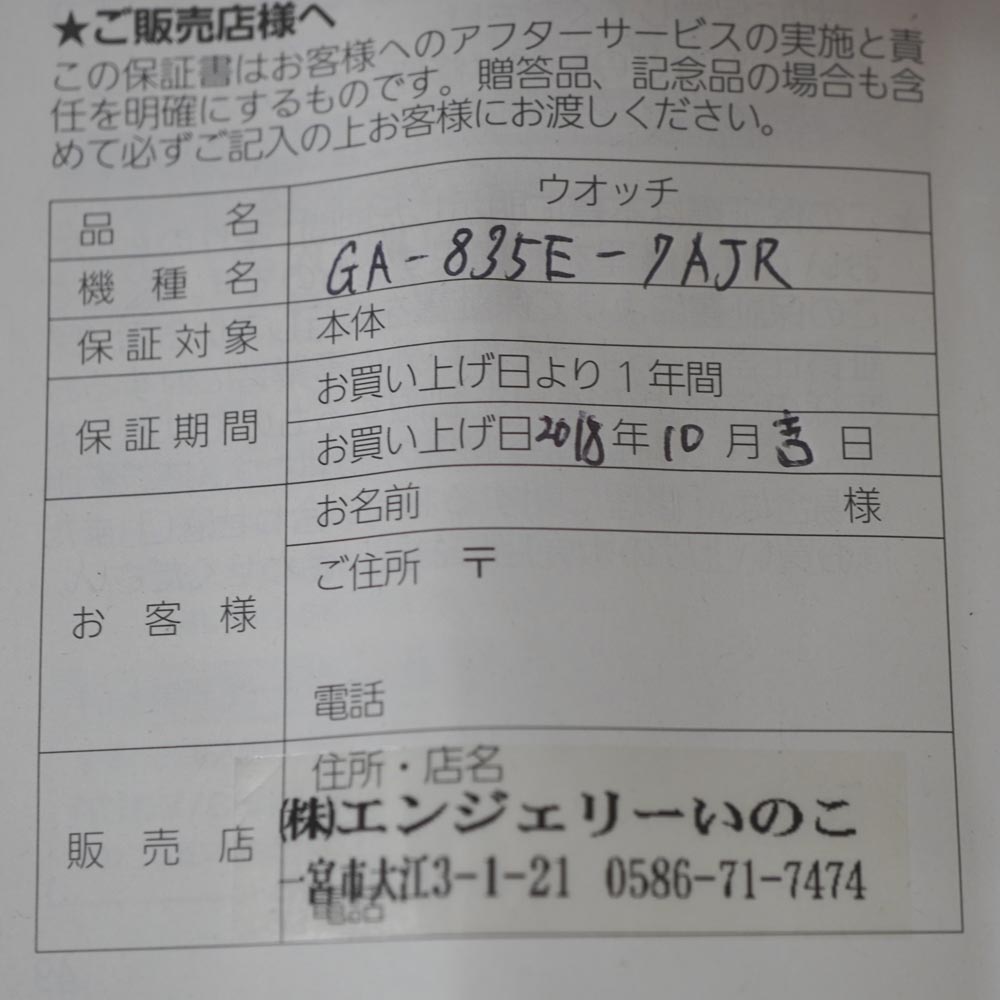 ★ご販売店様へ
この保証書はお客様へのアフターサービスの実施と責
任を明確にするものです。贈答品、記念品の場合も含
めて必ずご記入の上お客様にお渡しください。
品名 ウオッチ
機種名 GA-835E-7AJR
保証対象 本体
保証期間 お買い上げ日より1年間
お買い上げ日2018年10月吉日
お客様 お名前 様
ご住所 〒
電話
販売店 住所・店名
(株)エンジェリーいのこ
一宮市大江3-1-21 0586-71-7474
電話